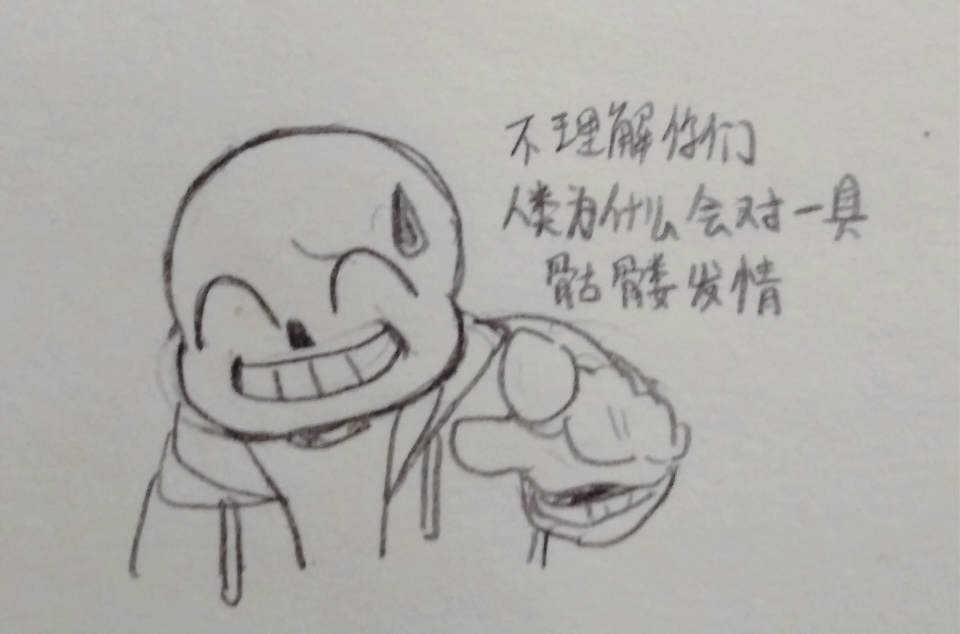 不理解你们
人类为什么会对一具
骷髅发情